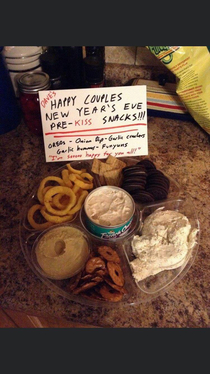 DAVE'S
HAPPY COUPLES
NEW YEAR'S EVE
PRE-KISS SNACKS!!!
OREOS - Onion Dip - Garlic crackers
Garlic hummus - Funyuns
"I'm soooo happy for you all!"